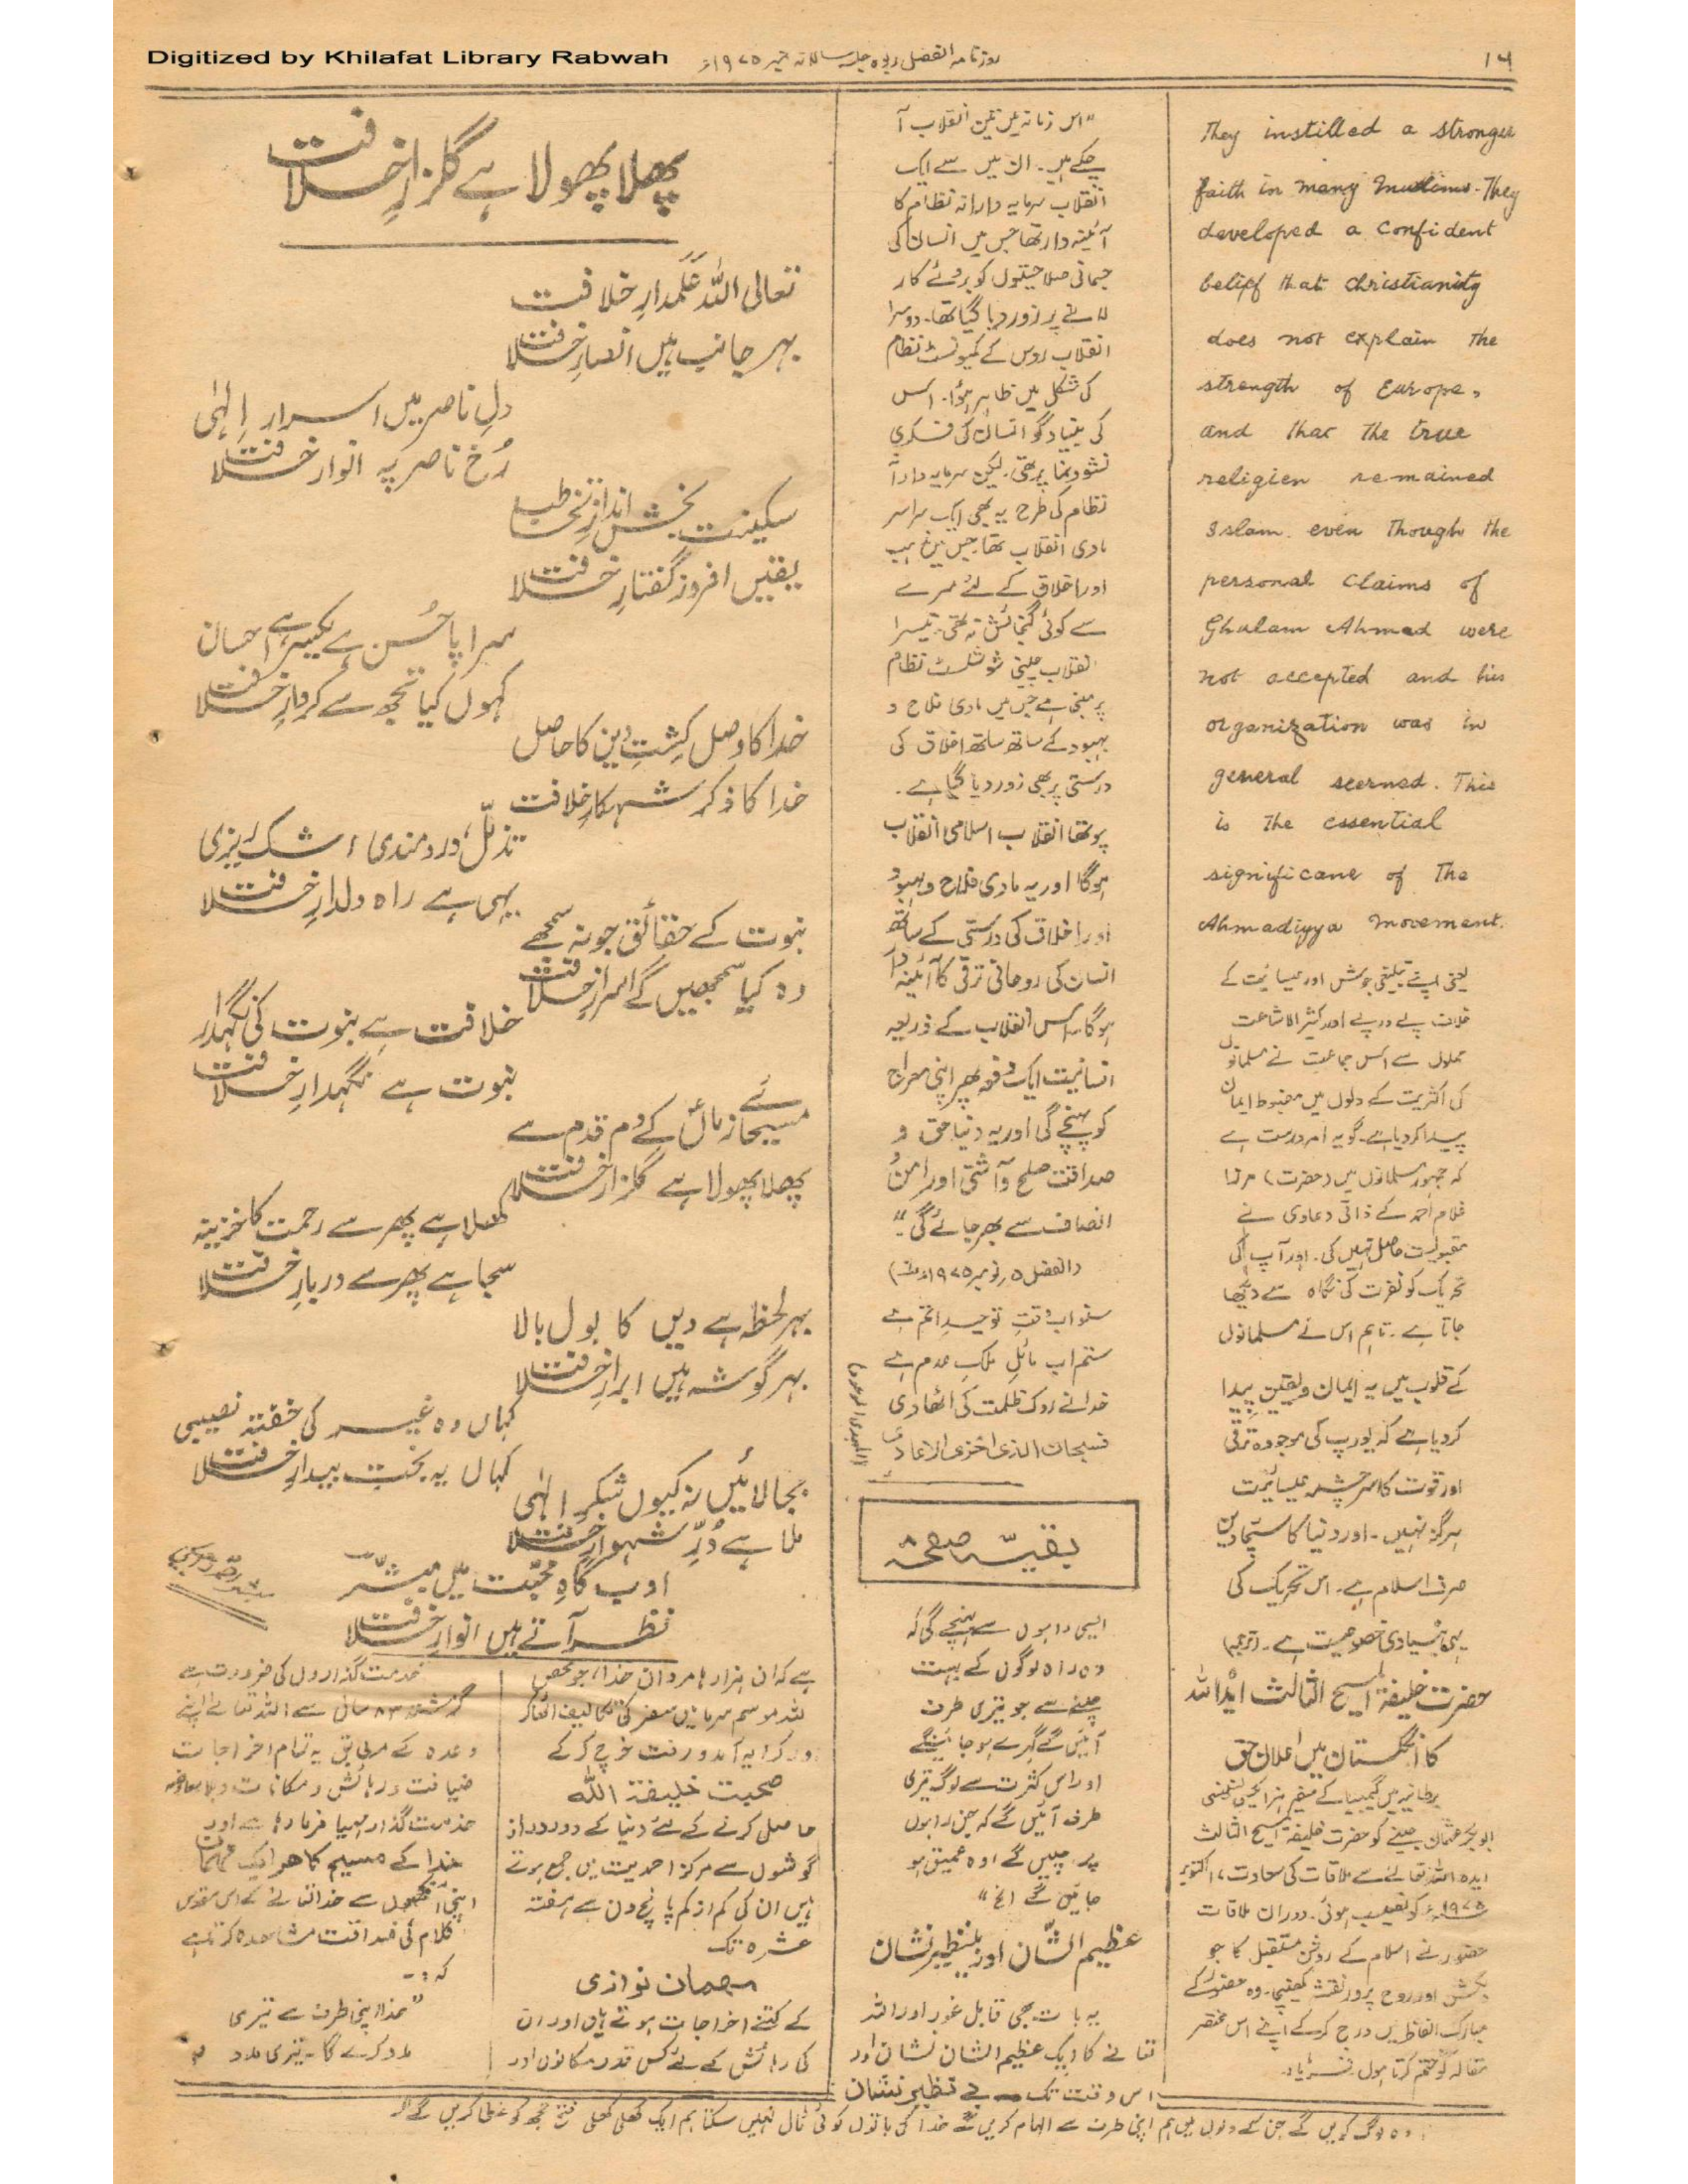 Digitized by Khilafat Library Rabwah
روزنامہ الفضل ربوہ جلسہ سالانہ نمبر ۱۹۷۵ء
۱۶
They instilled a stronger
faith in many Muslims. They
developed a confident
belief that christianity
does not explain the
strength of Europe,
and that the true
religien remained
Islam. even though the
personal claims of
Ghulam Ahmad were
not accepted and his
organization was in
general scerned. This
is the essential
significane of the
Ahmadiyya movement.
یعنی اپنے تبلیغی جوش اور عیسائیت کے
خلاف پے در پے اور کثیر الاشاعت
حملوں سے اس جماعت نے مسلمانوں
کی اکثریت کے دلوں میں مضبوط ایمان
پیدا کر دیا ہے۔ گو یہ امر درست ہے
کہ جمہور مسلمانوں میں (حضرت) مرزا
غلام احمد کے ذاتی دعاوی نے
مقبولیت حاصل نہیں کی۔ اور آپ کی
تحریک کو نفرت کی نگاہ سے دیکھا
جاتا ہے۔ تاہم اس نے مسلمانوں
کے قلوب میں یہ ایمان و یقین پیدا
کر دیا ہے کہ یورپ کی موجودہ ترقی
اور قوت کا سرچشمہ عیسائیت
ہرگز نہیں۔ اور دنیا کا سچا دین
صرف اسلام ہے۔ اس تحریک کی
یہی بنیادی خصوصیت ہے۔ (ترجمہ)
حضرت خلیفۃ المسیح الثالث ایدہ اللہ
کا انگلستان میں اعلان حق
برطانیہ میں گیمبیا کے سفیر ہز ایکسی لینسی
ابوبکر عثمان کو حضرت خلیفۃ المسیح الثالث
ایدہ اللہ تعالیٰ سے ملاقات کی سعادت ۷ اکتوبر
۱۹۷۵ء کو نصیب ہوئی۔ دوران ملاقات
حضور نے اسلام کے روشن مستقبل کا جو
دلکش اور روح پرور نقشہ کھینچا۔ وہ حضور کے
مبارک الفاظ میں درج کر کے اپنے اس مختصر
مقالہ کو ختم کرتا ہوں۔ فرمایا۔
"اس زمانہ میں تین انقلاب آ
چکے ہیں۔ ان میں سے ایک
انقلاب سرمایہ دارانہ نظام کا
آئینہ دار تھا جس میں انسان کی
جسمانی صلاحیتوں کو بروئے کار
لانے پر زور دیا گیا تھا۔ دوسرا
انقلاب روس کے کمیونسٹ نظام
کی شکل میں ظاہر ہوا۔ اس
کی بنیاد گو انسان کی فکری
نشوونما پر تھی۔ لیکن سرمایہ دارانہ
نظام کی طرح یہ بھی ایک سراسر
مادی انقلاب تھا۔ جس میں مذہب
اور اخلاق کے لئے سرے
سے کوئی گنجائش نہ تھی۔ تیسرا
انقلاب چینی سوشلسٹ نظام
پر مبنی ہے جس میں مادی فلاح و
بہبود کے ساتھ ساتھ اخلاق کی
درستی پر بھی زور دیا گیا ہے۔
چوتھا انقلاب اسلامی انقلاب
ہوگا اور یہ مادی فلاح و بہبود
اور اخلاق کی درستی کے ساتھ
انسان کی روحانی ترقی کا آئینہ دار
ہوگا۔ اس انقلاب کے ذریعہ
انسانیت ایک دفعہ پھر اپنی معراج
کو پہنچے گی اور یہ دنیا حق و
صداقت صلح و آشتی اور امن و
انصاف سے بھر جائے گی۔"
(الفضل ۵ نومبر ۱۹۷۵ء)
سنو اب وقتِ توحیدِ اتم ہے
ستم اب مائلِ ملکِ عدم ہے
خدا نے روک ظلمت کی اٹھا دی
فسبحان الذی اخزی الاعادی
بقیہ صفحہ ۸
ایسی راہوں سے پہنچے گی کہ
وہ راہ لوگوں کے بہت
چلنے سے جو تیری طرف
آئیں گے گہرے ہو جائیں گے
اور اس کثرت سے لوگ تیری
طرف آئیں گے کہ جن راہوں
پر چلیں گے وہ عمیق ہو
جائیں گے الخ"
عظیم الشان اور بے نظیر نشان
یہ بات بھی قابل غور اور اللہ
تعالیٰ کا ایک عظیم الشان نشان اور
اس وقت تک بے نظیر نشان
پھلا پھولا ہے گلزارِ خلافت
تعالی اللہ عَلَمدارِ خلافت
بہر جانب ہیں انصارِ خلافت
دلِ ناصر میں اسرارِ الٰہی
رُخِ ناصر پہ انوارِ خلافت
سکینت بخش اندازِ تخاطب
یقیں افروز گفتارِ خلافت
سراپا حُسن ہے یکسر ہے احسان
کہوں کیا تجھ سے کردارِ خلافت
خدا کا وصل کِشتِ دین کا حاصل
خدا کا ذکر شہکارِ خلافت
تذلّل، دردمندی، اشک ریزی
یہی ہے راہ دلدارِ خلافت
نبوت کے حقائق جو نہ سمجھے
وہ کیا سمجھیں گے اسرارِ خلافت
خلافت ہے نبوت کی نگہدار
نبوت ہے نگہدارِ خلافت
مسیحائے زماںؑ کے دم قدم سے
پھلا پھولا ہے گلزارِ خلافت
کھلا ہے پھر سے رحمت کا خزینہ
سجا ہے پھر سے دربارِ خلافت
بہر لحظہ ہے دیں کا بول بالا
بہر گوشہ ہیں ابرارِ خلافت
کہاں وہ غیر کی خفتہ نصیبی
کہاں یہ بختِ بیدارِ خلافت
بجا لائیں نہ کیوں شکرِ الٰہی
ملا ہے دُرِّ شہوارِ خلافت
ادب گاہِ محبّت میں مبشّر
نظر آتے ہیں انوارِ خلافت
ہے کہ ان ہزارہا مردان خدا، جو محض
للہ موسم سرما میں سفر کی تکالیف اٹھا کر
اور کرایہ آمد و رفت خرچ کر کے
صحبت خلیفۃ اللہ
حاصل کرنے کے لئے دنیا کے دور دراز
گوشوں سے مرکز احمدیت میں جمع ہوتے
ہیں ان کی کم از کم پانچ دن سے ہفتہ
عشرہ تک
مہمان نوازی
کے کتنے اخراجات ہوتے ہیں اور ان
کی رہائش کے لئے کس قدر مکانوں اور
خدمت گذاروں کی ضرورت ہے
گزشتہ ۸۳ سال سے اللہ تعالےٰ اپنے
وعدہ کے مطابق یہ تمام اخراجات
ضیافت و رہائش و مکانات و بلا معاوضہ
خدمت گذار مہیا فرما رہا ہے اور
خدا کے مسیح کا ھر ایک مہمان
اپنی آنکھوں سے خدا تعالیٰ کے اس مقدس
کلام کی صداقت مشاھدہ کرتا ہے
کہ :-
"خدا اپنی طرف سے تیری
مدد کرے گا۔ تیری مدد
وہ لوگ کریں گے جن کے دلوں میں ہم اپنی طرف سے الہام کریں گے خدا کی باتوں کو کوئی ٹال نہیں سکتا ہم ایک کھلی کھلی فتح تجھ کو عطا کریں گے